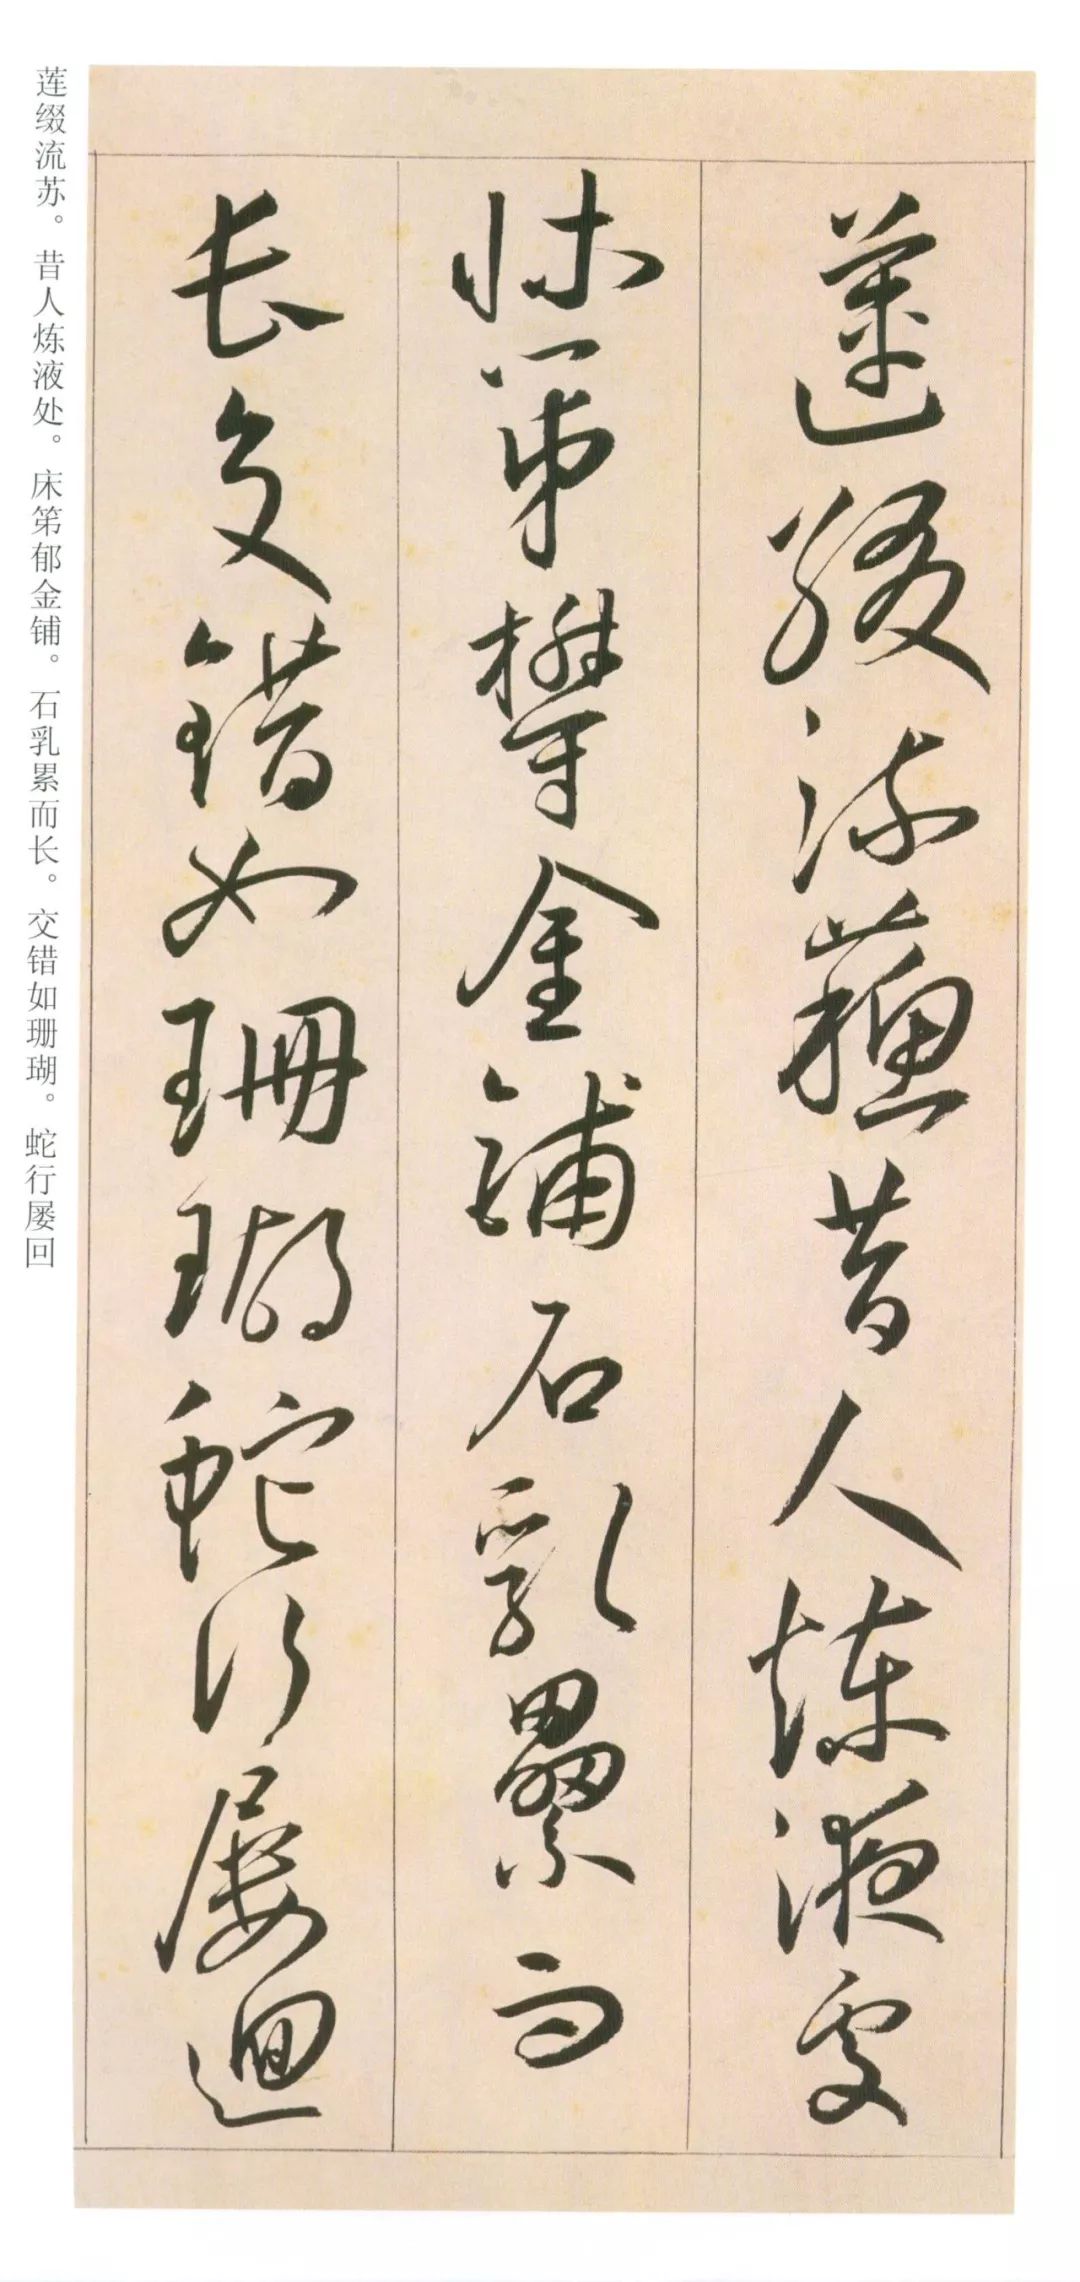 蓮綴流蘇昔人煉液處
牀笫欝金鋪石乳纍而
長交錯如珊瑚蛇行屡迴
莲缀流苏。昔人炼液处。床笫郁金铺。石乳累而长。交错如珊瑚。蛇行屡回